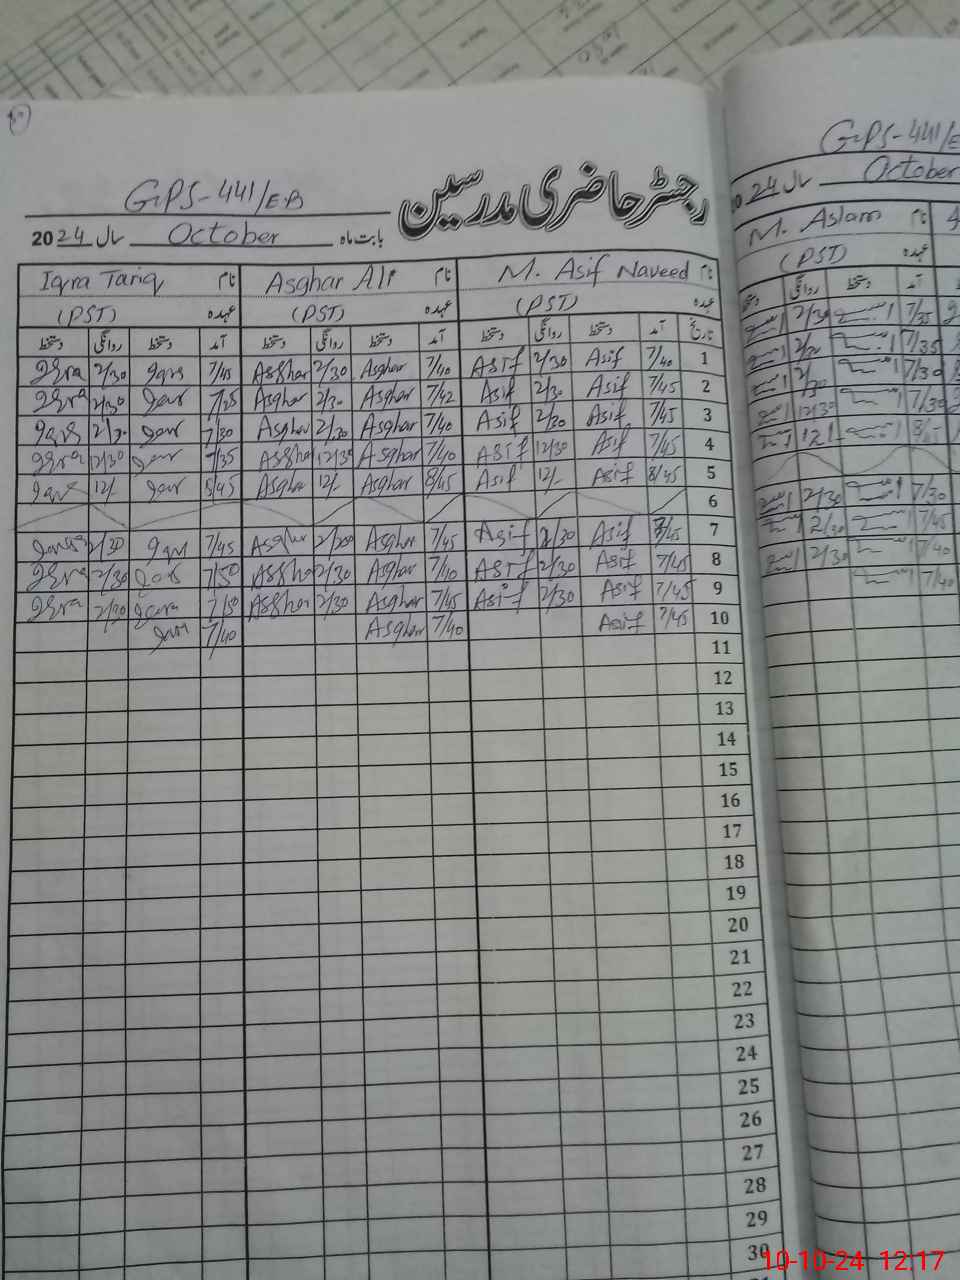 GPS-441/EB
رجسٹر حاضری مدرسین
بابت ماہ October سال 2024
نام M. Asif Naveed نام Asghar Ali نام Iqra Tariq
عہدہ (PST) عہدہ (PST) عہدہ (PST)
تاریخ آمد دستخط روانگی دستخط آمد دستخط روانگی دستخط آمد دستخط روانگی دستخط
1 7/40 Asif 2/30 Asif 7/40 Asghar 2/30 Asghar 7/45 Iqra 2/30 Iqra
2 7/45 Asif 2/30 Asif 7/42 Asghar 2/30 Asghar 2/30
3 7/45 Asif 2/30 Asif 7/40 Asghar 2/30 Asghar 7/30 2/30
4 7/45 Asif 12/30 Asif 7/40 Asghar 12/30 7/35 12/30 Iqra
5 8/45 Asif 12/- Asif 8/45 Asghar 12/- Asghar 8/45 12/-
6
7 7/45 Asif 2/30 Asif 7/45 Asghar Asghar 7/45 2/30
8 7/45 Asif 2/30 Asif 7/40 Asghar 2/30 Asghar 7/50 2/30 Iqra
9 7/45 Asif 2/30 Asif 7/45 Asghar 2/30 Asghar 7/50 2/30 Iqra
10 7/45 Asif 7/40 Asghar 7/40
11
12
13
14
15
16
17
18
19
20
21
22
23
24
25
26
27
28
29
30
GPS-441/E
October سال 2024
نام M. Aslam
عہدہ (PST)
آمد دستخط روانگی
7/35 2/30
7/35
7/30 2/30
7/30 12/30
7/30 2/30
7/45 2/30
7/40 2/30
7/40
10-10-24 12:17